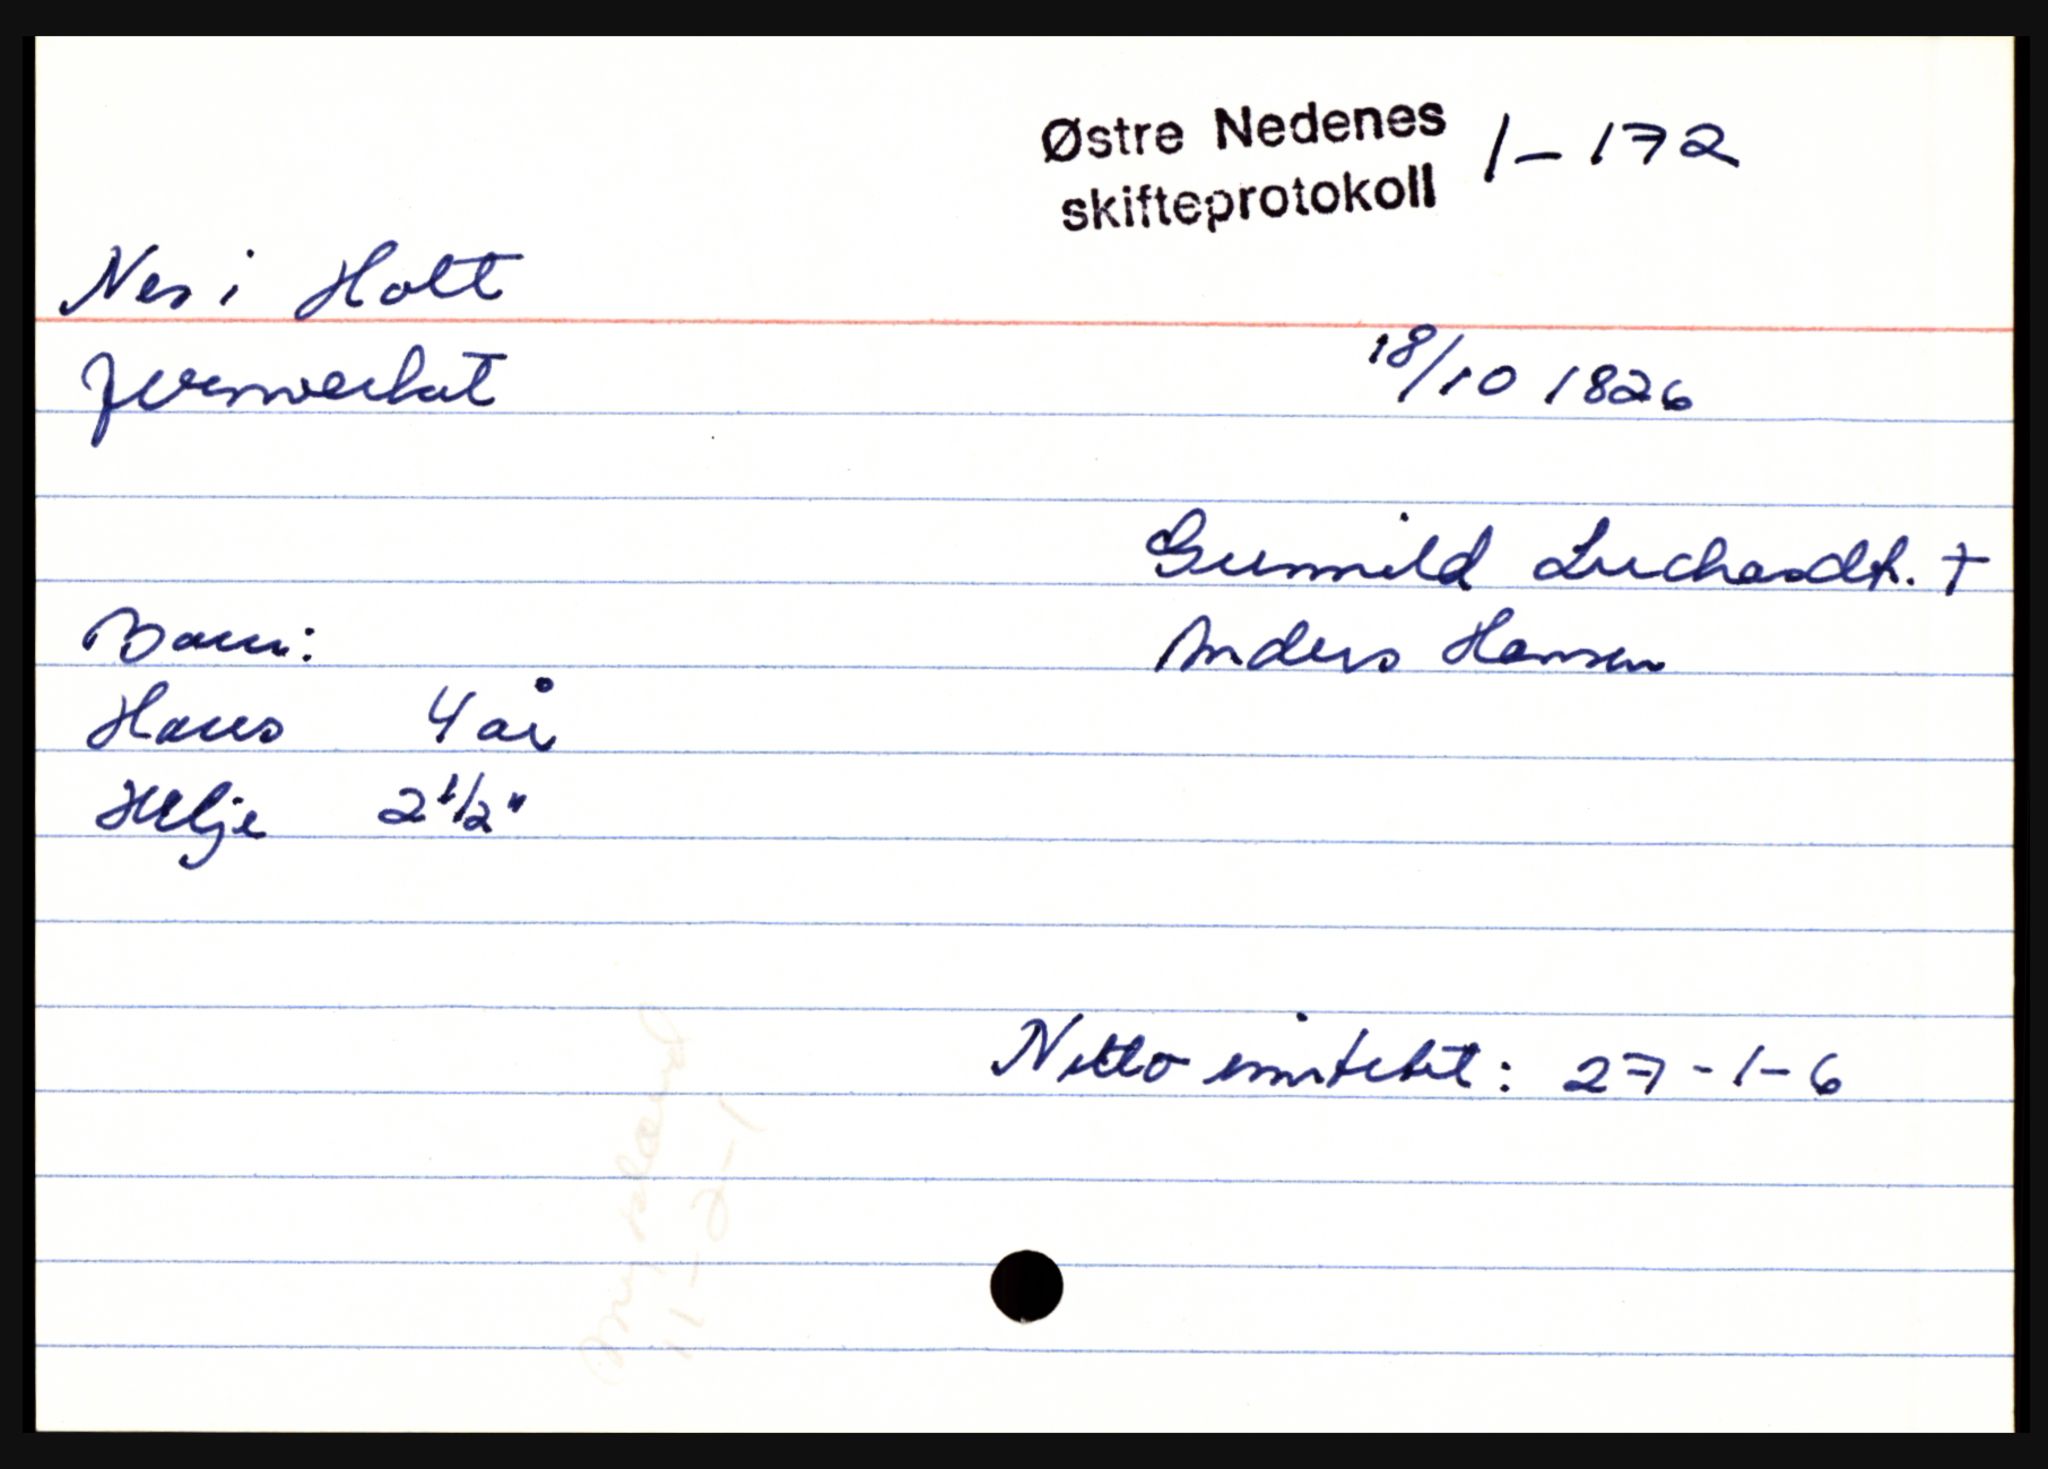 Østre Nedenes 1-172
skifteprotokoll
Nes i Holt
jernverket 18/10 1826
Gunnild Luchasdt. +
Barn: Anders Hansen
Hans 4 år
Helje 2 1/2 "
Netto innteket: 27-1-6